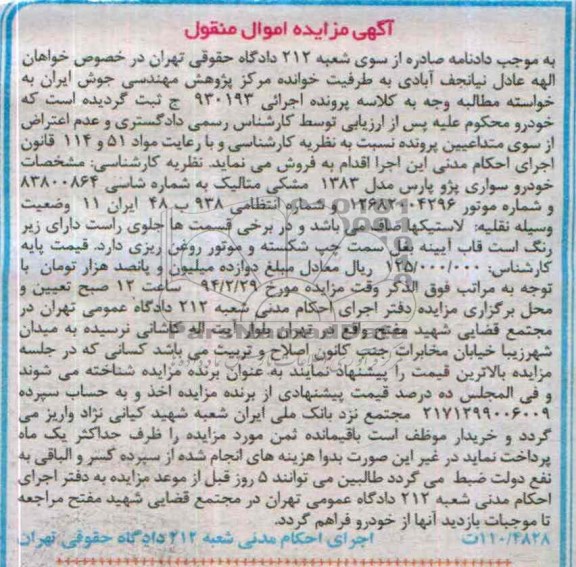 آگهی مزایده اموال منقول
به موجب دادنامه صادره از سوی شعبه ۲۱۲ دادگاه حقوقی تهران در خصوص خواهان
الهه عادل نیانجف آبادی به طرفیت خوانده مرکز پژوهش مهندسی جوش ایران به
خواسته مطالبه وجه به کلاسه پرونده اجرائی ۹۳۰۱۹۳ ج ثبت گردیده است که
خودرو محکوم علیه پس از ارزیابی توسط کارشناس رسمی دادگستری و عدم اعتراض
از سوی متداعیین پرونده نسبت به نظریه کارشناسی و با رعایت مواد ۵۱ و ۱۱۴ قانون
اجرای احکام مدنی این اجرا اقدام به فروش می نماید. نظریه کارشناسی: مشخصات
خودرو سواری پژو پارس مدل ۱۳۸۳ مشکی متالیک به شماره شاسی ۸۳۸۰۰۸۶۴
و شماره موتور ۱۲۶۸۲۰۰۴۲۹۶ و شماره انتظامی ۹۳۸ ب ۴۸ ایران ۱۱ وضعیت
وسیله نقلیه: لاستیکها صاف می باشد و در برخی قسمت ها جلوی راست دارای زیر
رنگ است قاب آیینه بغل سمت چپ شکسته و موتور روغن ریزی دارد. قیمت پایه
کارشناس: ۱۲۵/۰۰۰/۰۰۰ ریال معادل مبلغ دوازده میلیون و پانصد هزار تومان با
توجه به مراتب فوق الذکر وقت مزایده مورخ ۹۴/۲/۲۹ ساعت ۱۲ صبح تعیین و
محل برگزاری مزایده دفتر اجرای احکام مدنی شعبه ۲۱۲ دادگاه عمومی تهران در
مجتمع قضایی شهید مفتح واقع در تهران بلوار آیت اله کاشانی نرسیده به میدان
شهرزیبا خیابان مخابرات جنب کانون اصلاح و تربیت می باشد کسانی که در جلسه
مزایده بالاترین قیمت را پیشنهاد نمایند به عنوان برنده مزایده شناخته می شوند
و فی المجلس ده درصد قیمت پیشنهادی از برنده مزایده اخذ و به حساب سپرده
۲۱۷۱۲۹۹۰۰۶۰۰۹ مجتمع نزد بانک ملی ایران شعبه شهید کیانی نژاد واریز می
گردد و خریدار موظف است باقیمانده ثمن مورد مزایده را ظرف حداکثر یک ماه
پرداخت نماید در غیر این صورت بدوا هزینه های انجام شده از سپرده کسر و الباقی به
نفع دولت ضبط می گردد طالبین می توانند ۵ روز قبل از موعد مزایده به دفتر اجرای
احکام مدنی شعبه ۲۱۲ دادگاه عمومی تهران در مجتمع قضایی شهید مفتح مراجعه
تا موجبات بازدید آنها از خودرو فراهم گردد.
۱۱۰/۴۸۲۸ت اجرای احکام مدنی شعبه ۲۱۲ دادگاه حقوقی تهران